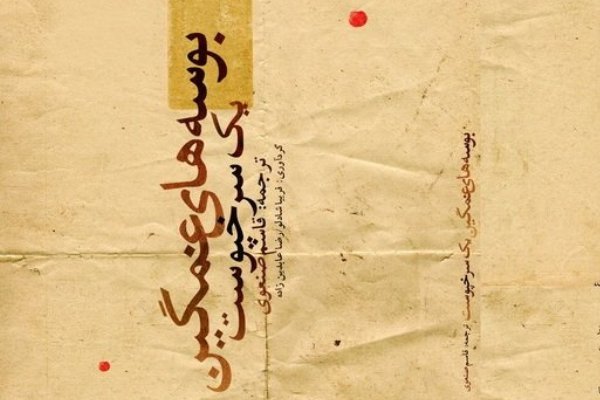 بوسه‌های غمگین
یک سرخپوست
ترجمه: قاسم صنعوی
گردآوری: فریبا شادلو / رضا عابدین زاده
بوسه‌های غمگین یک سرخپوست ترجمه: قاسم صنعوی